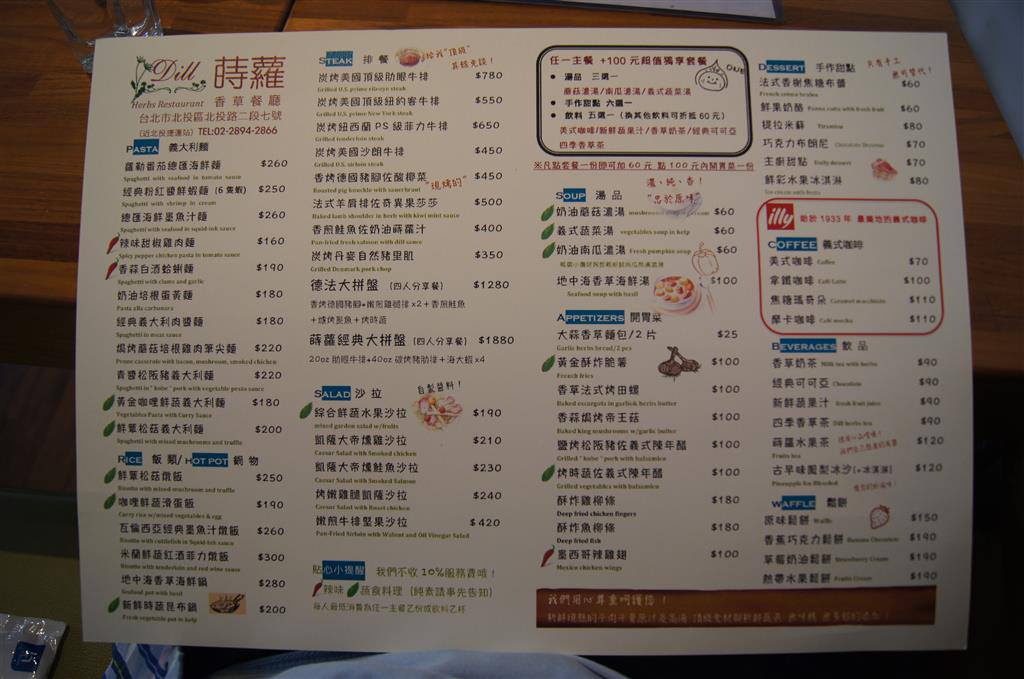 Dill 蒔蘿
Herbs Restaurant 香草餐廳
台北市北投區北投路二段七號
(近北投捷運站) TEL:02-2894-2866
PASTA 義大利麵
蘿勒番茄總匯海鮮麵 $260
Spaghetti with seafood in tomato sauce
經典粉紅醬鮮蝦麵 (6隻蝦) $250
Spaghetti with shrimp in cream
總匯海鮮墨魚汁麵 $260
Spaghetti with seafood in squid-ink sauce
辣味甜椒雞肉麵 $160
Spicy pepper chicken pasta in tomato sauce
香蒜白酒蛤蜊麵 $190
Spaghetti with clams and garlic
奶油培根蛋黃麵 $180
Pasta alla carbonara
經典義大利肉醬麵 $180
Spaghetti in meat sauce
焗烤蘑菇培根雞肉筆尖麵 $220
Penne casserole with bacon, mushroom, smoked chicken
青醬松阪豬義大利麵 $220
Spaghetti in "kobe" pork with vegetable pesto sauce
黃金咖哩鮮蔬義大利麵 $180
Vegetables Pasta with Curry Sauce
鮮蕈松菇義大利麵 $200
Spaghetti with mixed mushrooms and truffle
RICE 飯類/HOT POT 鍋物
鮮蕈松菇燉飯 $250
Risotto with mixed-mushroom and truffle
咖哩鮮蔬滑蛋飯 $190
Curry rice w/mixed vegetables & egg
瓦倫西亞經典墨魚汁燉飯 $260
Risotto with cuttlefish in Squid-ink sauce
米蘭鮮蔬紅酒菲力燉飯 $300
Risotto with tenderloin and red wine sauce
地中海香草海鮮鍋 $280
Seafood pot with basil
新鮮時蔬昆布鍋 $200
Fresh vegetable pot in kelp
STEAK 排餐
炭烤美國頂級肋眼牛排 $780
Grilled U.S. prime ribeye steak
炭烤美國頂級紐約客牛排 $550
Grilled U.S. prime New York steak
炭烤紐西蘭PS級菲力牛排 $650
Grilled tenderloin steak
炭烤美國沙朗牛排 $450
Grilled U.S. sirloin steak
香烤德國豬腳佐酸椰菜 "現烤的" $450
Roasted pig knuckle with sauerkraut
法式羊肩排佐奇異果莎莎 $500
Baked lamb shoulder in herb with kiwi mint sauce
香煎鮭魚佐奶油蒔蘿汁 $400
Pan-fried fresh salmon with dill sauce
炭烤丹麥自然豬里肌 $350
Grilled Denmark pork chop
德法大拼盤 (四人分享餐) $1280
香烤德國豬腳+嫩煎雞腿排x2+香煎鮭魚
蒔蘿經典大拼盤 (四人分享餐) $1880
20oz 肋眼牛排+40oz 碳烤豬肋排+海大蝦x4
SALAD 沙拉
自製醬料!
綜合鮮蔬水果沙拉 $190
mixed garden salad w/fruits
凱薩大帝燻雞沙拉 $210
Caesar Salad with Smoked chicken
凱薩大帝燻鮭魚沙拉 $230
Caesar Salad with Smoked Salmon
炙烤嫩雞腿凱薩沙拉 $240
Caesar Salad with Roast chicken
嫩煎牛排堅果沙拉 $420
Pan-Fried Sirloin with Walnut and Oil Vinegar Salad
貼心小提醒 我們不收10%服務費哦!
辣味 蔬食料理 (純素請事先告知)
每人最低消費為任一主餐乙份或飲料乙杯
任一主餐 +100元超值獨享套餐
● 湯品 三選一
蘑菇濃湯/南瓜濃湯/義式蔬菜湯
● 手作甜點 六選一
● 飲料 五選一 (換其他飲料可折抵60元)
美式咖啡/新鮮蔬果汁/香草奶茶/經典可可亞
四季香草茶
※凡點套餐一份即可加60元 點100元內開胃菜一份
SOUP 湯品
濃、純、香!
"忠於原味"
奶油蘑菇濃湯 $60
義式蔬菜湯 vegetables soup in kelp $60
奶油南瓜濃湯 Fresh pumpkin soup $60
地中海香草海鮮湯 $100
Seafood soup with basil
APPETIZERS 開胃菜
大蒜香草麵包/2片 $25
Garlic herbs bread/2 pcs
黃金酥炸脆薯 $100
French fries
香草法式烤田螺 $100
Baked escargots in garlic& herbs butter
香蒜焗烤帝王菇 $100
Baked king mushrooms w/garlic butter
鹽烤松阪豬佐義式陳年醋 $100
Grilled "kobe" pork with balsamico
烤時蔬佐義式陳年醋 $100
Grilled vegetables with balsamico
酥炸雞柳條 $180
Deep fried chicken fingers
酥炸魚柳條 $180
Deep fried fish
墨西哥辣雞翅 $100
Mexico chicken wings
DESSERT 手作甜點
法式香榭焦糖布蕾 $60
French crème brulee
鮮果奶酪 Panna cotta with fresh fruit $60
提拉米蘇 Tiramisu $80
巧克力布朗尼 Chocolate Brownie $70
主廚甜點 Daily dessert $70
鮮彩水果冰淇淋 $80
Ice cream with fruits
illy 始於1933年 義式咖啡
COFFEE 義式咖啡
美式咖啡 Coffee $70
拿鐵咖啡 Café Latte $100
焦糖瑪奇朵 Caramel macchiato $110
摩卡咖啡 Café mocha $110
BEVERAGES 飲品
香草奶茶 Milk tea with herbs $90
經典可可亞 Chocolate $90
新鮮蔬果汁 fresh fruit juice $90
四季香草茶 Dill herbs tea $90
蒔蘿水果茶 $120
Fruits tea
古早味鳳梨冰沙(+冰淇淋) $120
Pineapple Ice Blended
WAFFLE 鬆餅
原味鬆餅 Waffle $150
香蕉巧克力鬆餅 Banana Chocolate $190
草莓奶油鬆餅 Strawberry Cream $190
熱帶水果鬆餅 Fruits Cream $190
我們用心尊重呵護您!